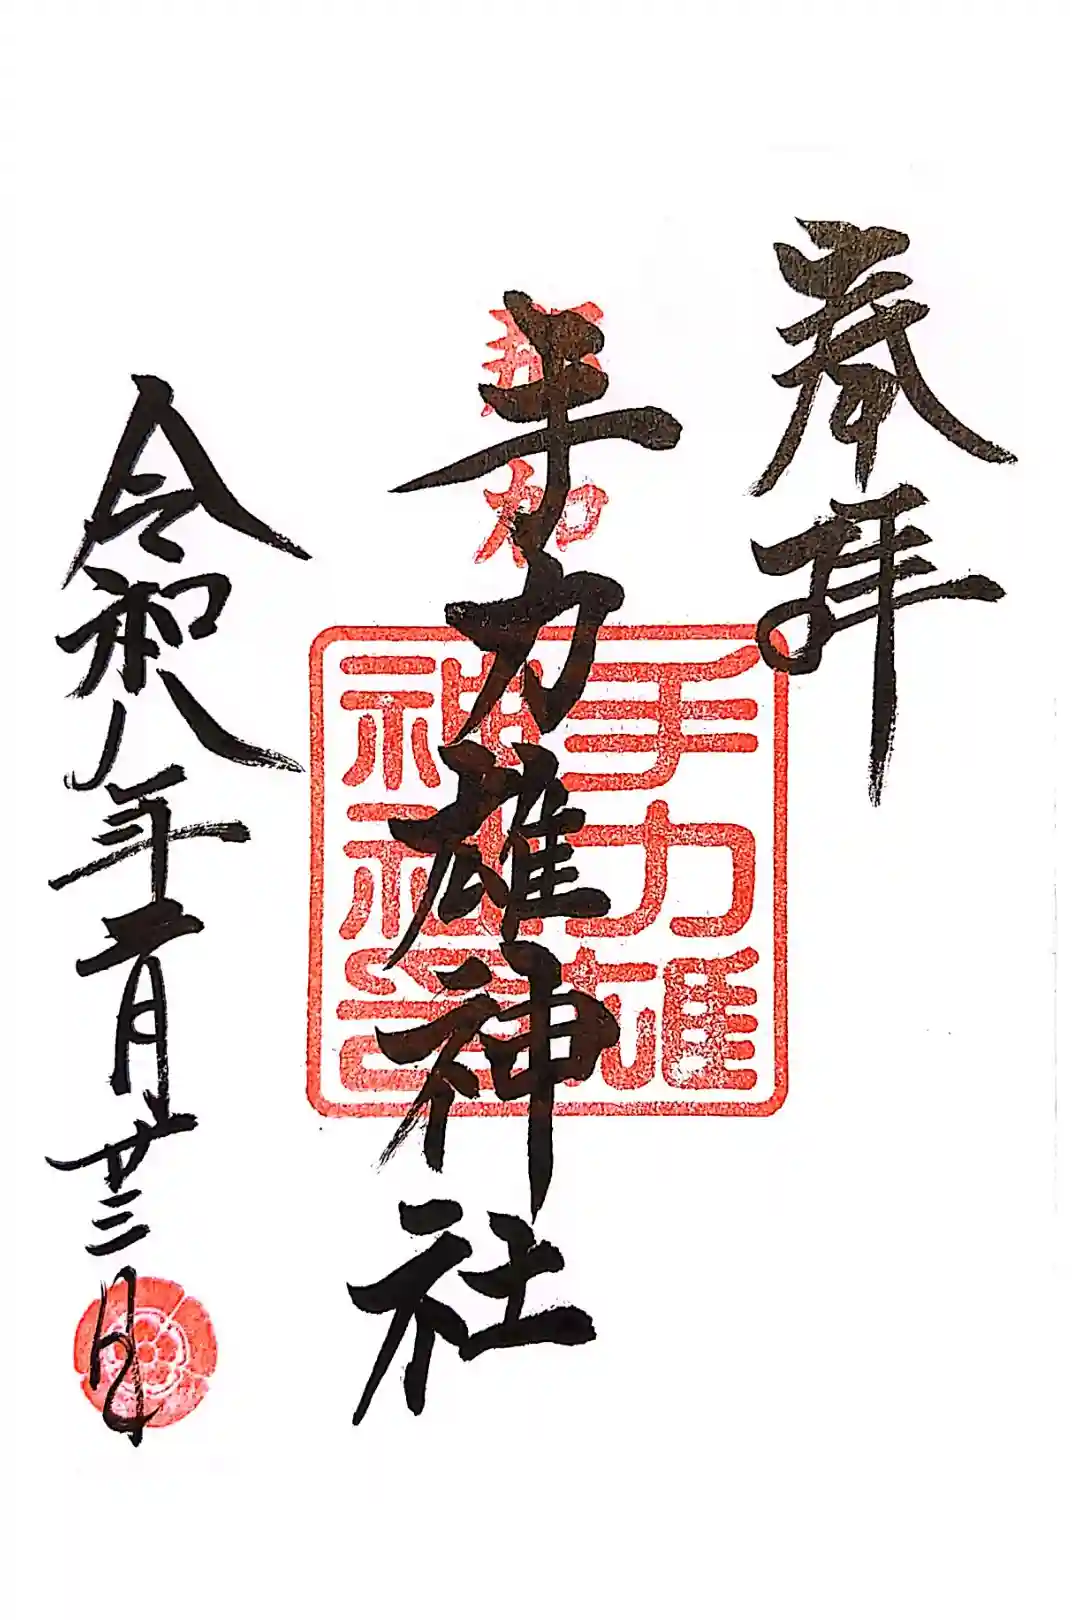 奉拝
手力雄神社
手力雄
神社印
令和八年二月廿三日